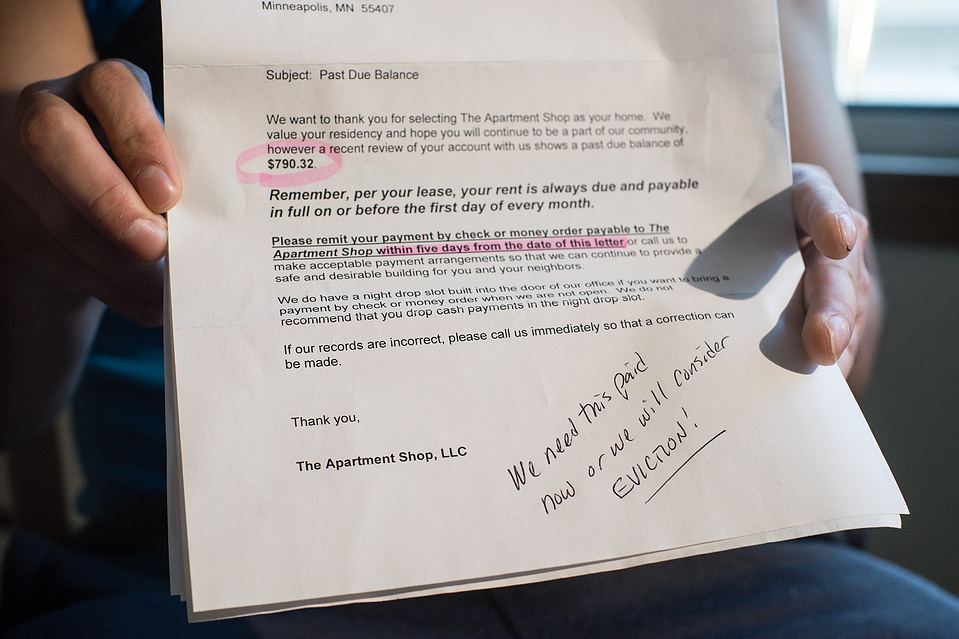 Minneapolis, MN 55407
Subject: Past Due Balance
We want to thank you for selecting The Apartment Shop as your home. We
value your residency and hope you will continue to be a part of our community,
however a recent review of your account with us shows a past due balance of
$790.32.
Remember, per your lease, your rent is always due and payable
in full on or before the first day of every month.
Please remit your payment by check or money order payable to The
Apartment Shop within five days from the date of this letter or call us to
make acceptable payment arrangements so that we can continue to provide a
safe and desirable building for you and your neighbors.
We do have a night drop slot built into the door of our office if you want to bring a
payment by check or money order when we are not open. We do not
recommend that you drop cash payments in the night drop slot.
If our records are incorrect, please call us immediately so that a correction can
be made.
Thank you,
The Apartment Shop, LLC
We need this paid
now or we will consider
EVICTION!